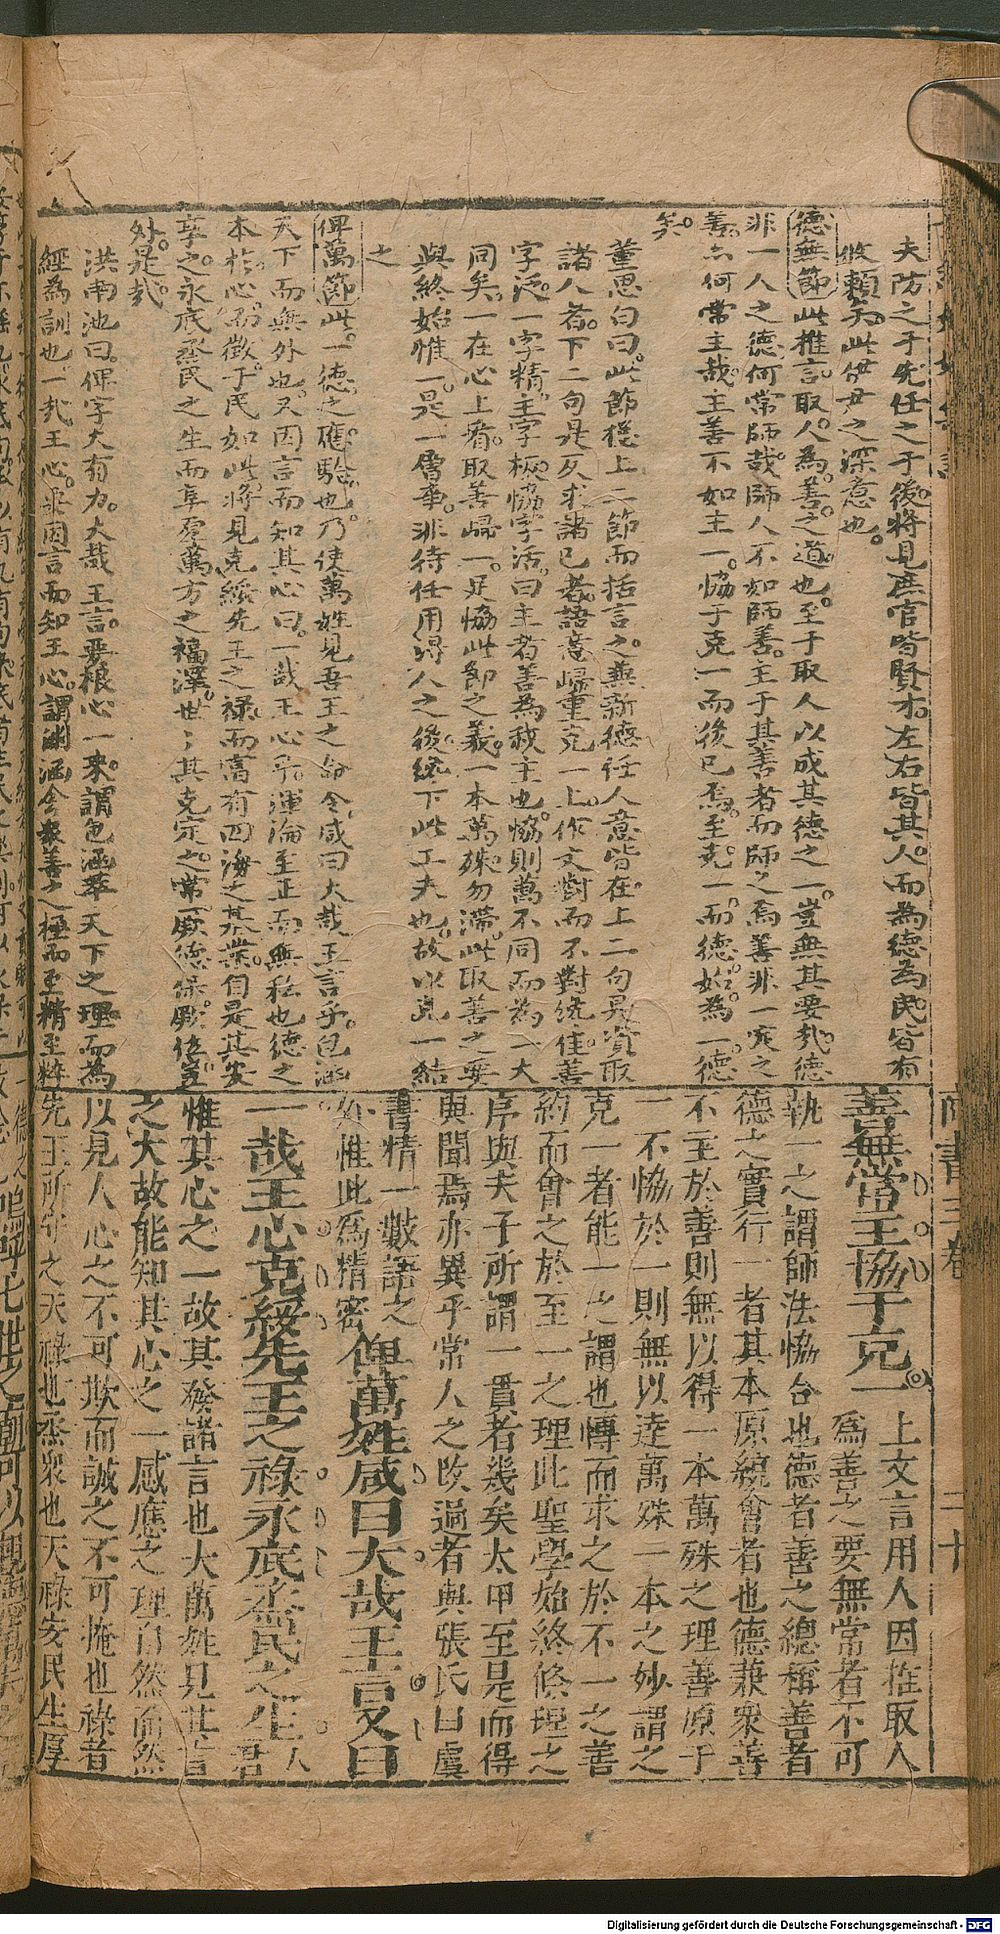 夫防之于先任之于後將見庶官皆賢才左右皆其人而為德為民皆有
攸賴矣此伊尹之深意也
德無節此推言取人為善之道也至于取人以成其德之一豈無其要哉德
非一人之德何常師哉師人不如師善主于其善者而師之焉善非一定之
善亦何常主哉主善不如主一協于克一而後已焉至克一而德始為一德
矣
董思白曰此節從上二節而括言之兼新德任人意皆在上二句是資取
諸人者下二句是反求諸已者語意歸重克一上作文對而不對統住善
字泛一字精主字板協字活曰主者善為我主也協則萬不同而為一大
同矣一在心上看取善歸一足協此節之義一本萬殊勿滯此取善之要
與終始惟一是一層事非待任用得人之後統下此工夫也故以克一結
之
俾萬節此一德之應驗也乃使萬姓見吾王之命令咸曰大哉王言乎包涵
天下而無外也又因言而知其心曰一哉王心乎渾淪至正而無私也德之
本于心而徵于民如此將見克綏先王之祿而富有四海之基業自是其安
享之永底烝民之生而享有萬方之福澤世世其克定之常厥德保厥位豈
外是哉
洪南池曰俾字大有力大哉王言要根心一來謂包涵萃天下之理而為
經為訓也一哉王心要因言而知王心謂渊涵會眾善之極而至精至粹
商書三卷 二十
善無常主協于克一上文言用人因推取人
為善之要無常者不可
執一之謂師法協合也德者善之總稱善者
德之實行一者其本原統會者也德兼眾善
不主於善則無以得一本萬殊之理善原于
一不協於一則無以達萬殊一本之妙謂之
克一者能一之謂也博而求之於不一之善
約而會之於至一之理此聖學始終條理之
序與夫子所謂一貫者幾矣太甲至是而得
與聞焉亦異乎常人之改過者與張氏曰虞
書精一數語之
外惟此為精密俾萬姓咸曰大哉王言又曰
一哉王心克綏先王之祿永底烝民之生人君
惟其心之一故其發諸言也大萬姓見其言
之大故能知其心之一感應之理自然而然
以見人心之不可欺而誠之不可掩也祿者
先王所守之天祿也烝眾也天祿安民生厚